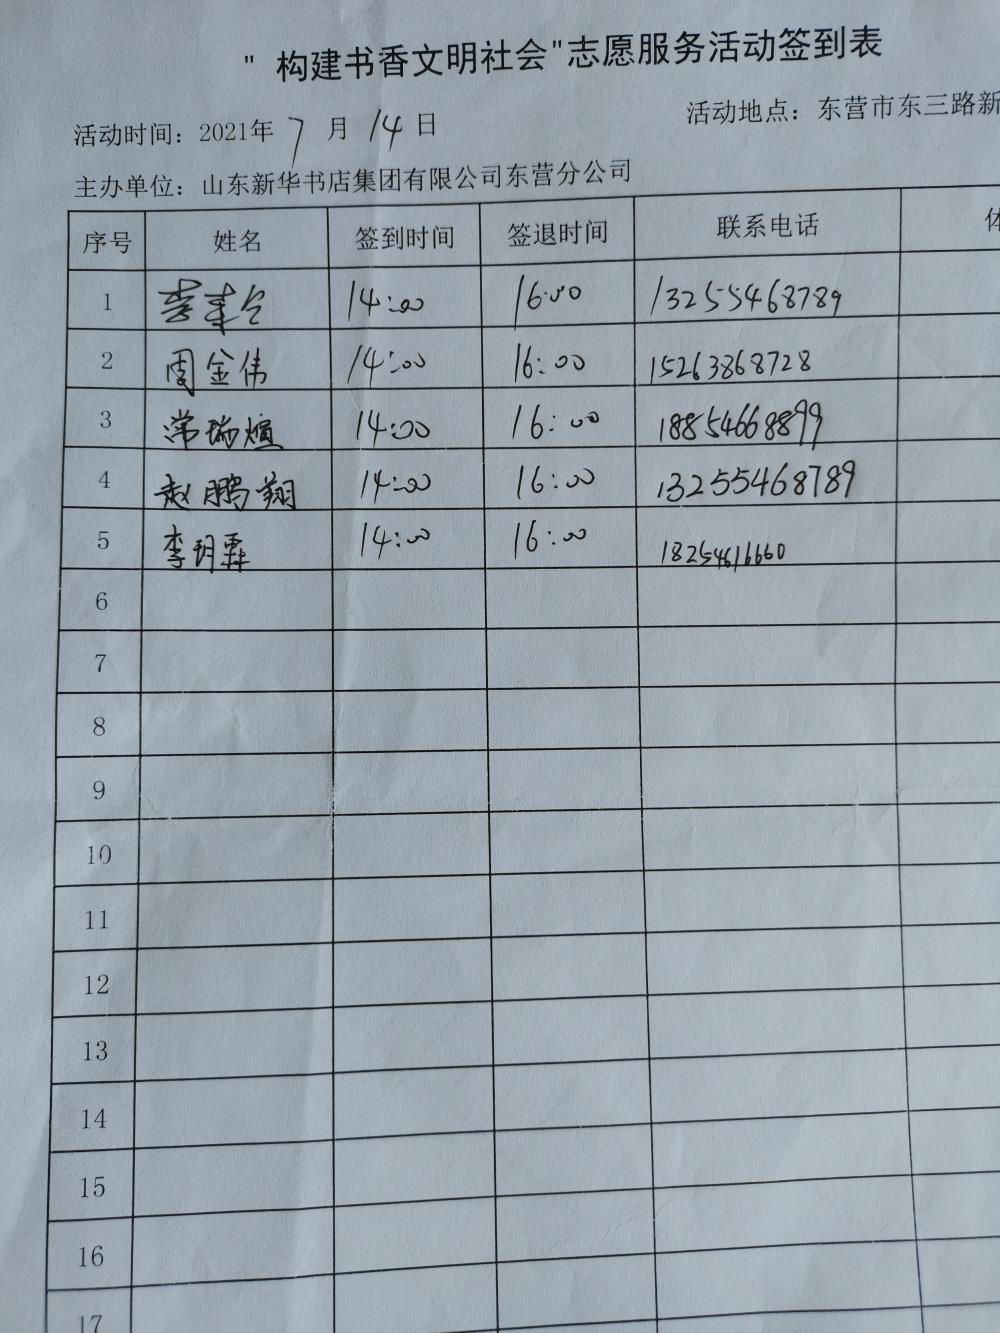 "构建书香文明社会"志愿服务活动签到表
活动时间：2021年 7 月 14 日 活动地点：东营市东三路新
主办单位：山东新华书店集团有限公司东营分公司
序号 姓名 签到时间 签退时间 联系电话 体
1 14:00 16:00 13255468789
2 周金伟 14:00 16:00 15263868728
3 常瑞煊 14:00 16:00 18854668899
4 赵鹏翔 14:00 16:00 13255468789
5 李玥霖 14:00 16:00 18254616660
6
7
8
9
10
11
12
13
14
15
16
17